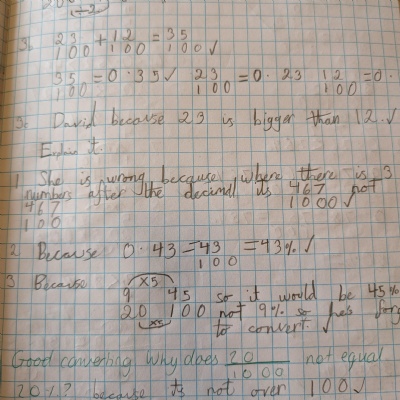 ÷2
3b 23/100 + 12/100 = 35/100 ✓
35/100 = 0.35 ✓ 23/100 = 0.23 12/100 = 0.
3c David because 23 is bigger than 12. ✓
Explain it.
1 She is wrong because where there is 3
numbers after the decimal its 467/1000 not ✓
467/100
2 Because 0.43 = 43/100 = 43% ✓
3 Because
×5
9/20 45/100 so it would be 45%
not 9% so he's
×5
to convert. ✓
Good converting Why does 20/1000 not equal
20%? because its not over 100 ✓